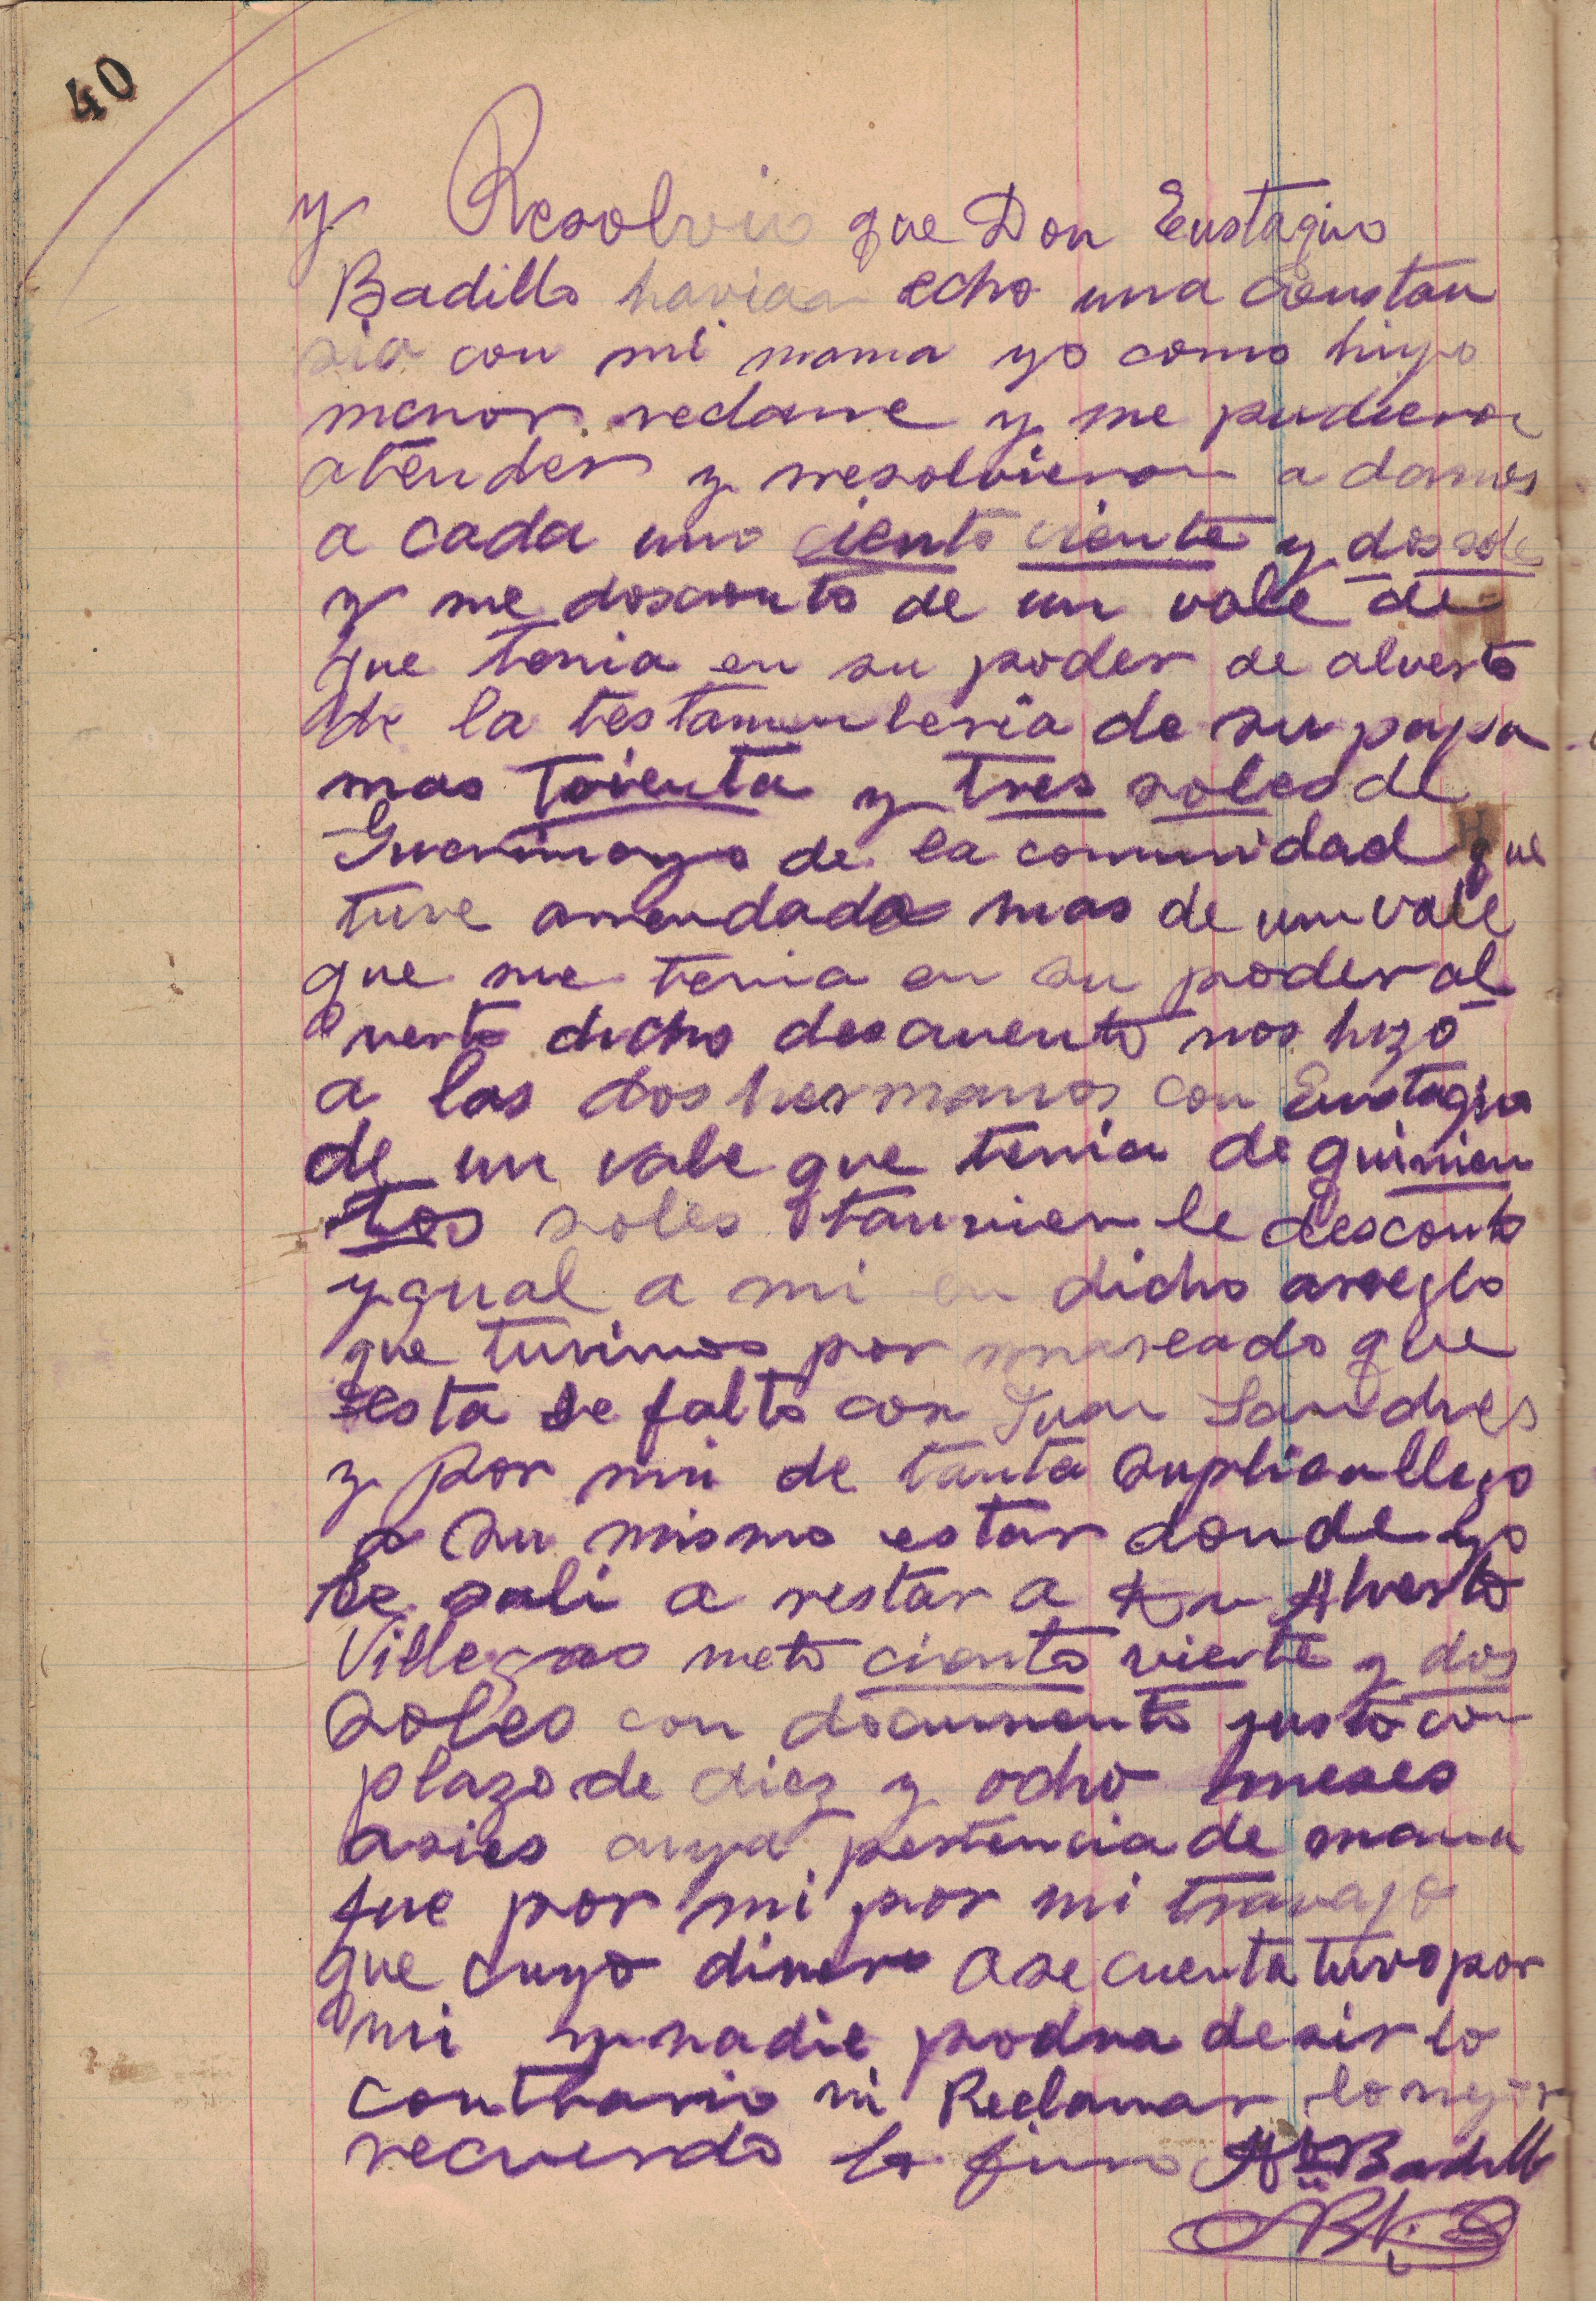 40
y Resolvio que Don Eustaqio
Badillo havian echo una Constan
sia con mi mama yo como hiyo
menor reclame y me pudieron
atender y rresolvieron a darnos
a cada uno ciento viente y dos sole
y me desconto de un vale de
que tenia en su poder de alverto
de la testamenteria de su papa
mas trienta y tres soles de
de la comunidad que
tuve arrendado mas de un vale
que me tenia en su poder al
verto dicho descuento nos hizo
a los dos hermanos con Eustaqio
de un vale que tenia de quinien
tos soles tanvien le desconto
ygual a mi en dicho arreglo
que tuvimos por que
esta se falto con Juan
y por mi de tanta suplica llego
a su mismo estar donde yo
le sali a restar a Alverto
Villegas neto ciento viente y dos
Soles con documento justo con
plazo de diez y ocho meses
asies cuya pertencia de mama
fue por mi por mi travajo
que cuyo dinero a se cuenta tuvo por
mi y nadie podra desir lo
contrario ni Reclamar
recuerdo lo firmo Badillo